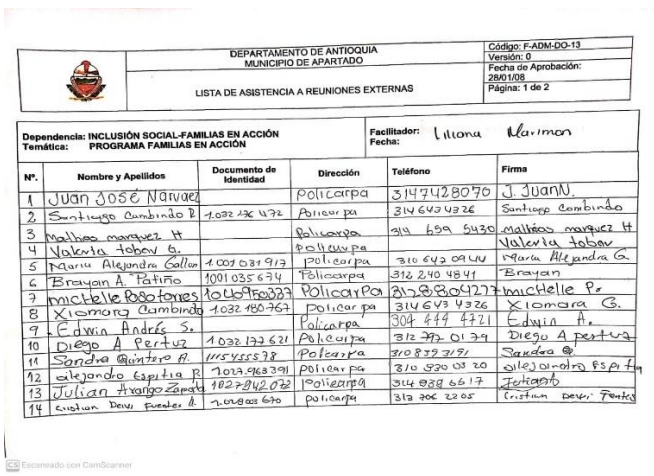 DEPARTAMENTO DE ANTIOQUIA
MUNICIPIO DE APARTADO
LISTA DE ASISTENCIA A REUNIONES EXTERNAS
Código: F-ADM-DO-13
Versión: 0
Fecha de Aprobación:
28/01/08
Página: 1 de 2
Dependencia: INCLUSIÓN SOCIAL-FAMILIAS EN ACCIÓN
Temática: PROGRAMA FAMILIAS EN ACCIÓN
Facilitador: Liliana Marimon
Fecha:
Nº. Nombre y Apellidos Documento de Identidad Dirección Teléfono Firma
1 Juan José Narvaez Policarpa 3147428070 J. JuanN.
2 Santiago Cambindo R 1.032 176 472 Policarpa 314 643 4326 Santiago Cambindo
3 Mathias marquez H Policarpa 314 659 5430 mathias marquez H
4 Valeria tobon G. Policarpa Valeria tobon
5 Maria Alejandra Gallon 1.001 031 917 policarpa 310 642 0944 Maria Alejandra G.
6 Brayan A. Patiño 1001 035 674 Policarpa 312 240 4841 Brayan
7 michelle Posso torres 1046950337 Policarpa 3128804277 michelle P.
8 Xiomara Cambindo 1.032 180.767 policarpa 314 643 4326 Xiomara C.
9 Edwin Andrés S. Policarpa 304 444 4721 Edwin A.
10 Diego A Pertuz 1.032 177 621 Policarpa 312 797 01 79 Diego A pertuz
11 Sandra Quintero A. 1115455578 Policarpa 310 839 3191 Sandra Q.
12 alejandro Espitia R 1.027.965391 policarpa 310 930 03 20 alejandro Espitia
13 Julian Arango Zapata 1027942072 Policarpa 314 938 6617
14 Cristian Deivi Fuentes 1.028003 670 policarpa 312 706 2205 Cristian Deivi Fuentes
CS Escaneado con CamScanner